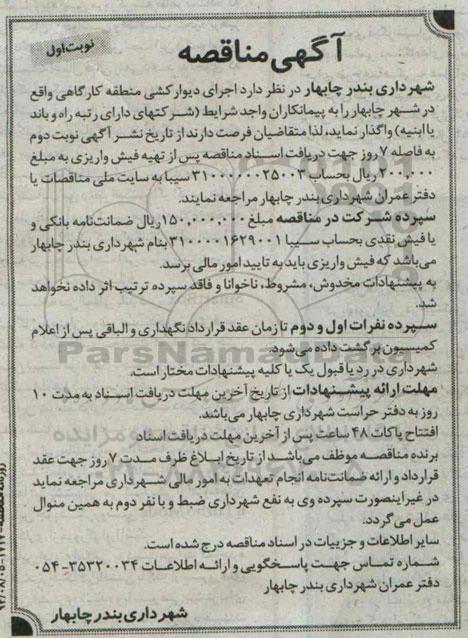 آگهی مناقصه
نوبت اول
شهرداری بندر چابهار در نظر دارد اجرای دیوارکشی منطقه کارگاهی واقع
در شهر چابهار را به پیمانکاران واجد شرایط (شرکتهای دارای رتبه راه و باند
یا ابنیه) واگذار نماید، لذا متقاضیان فرصت دارند از تاریخ نشر آگهی نوبت دوم
به فاصله ۷ روز جهت دریافت اسناد مناقصه پس از تهیه فیش واریزی به مبلغ
۲۰۰,۰۰۰ ریال بحساب ۳۱۰۰۰۰۰۰۲۵۰۰۳ سیبا به سایت ملی مناقصات یا
دفتر عمران شهرداری بندر چابهار مراجعه نمایند.
سپرده شرکت در مناقصه مبلغ ۱۵۰,۰۰۰,۰۰۰ ریال ضمانت‌نامه بانکی و
یا فیش نقدی بحساب سیبا ۳۱۰۰۰۰۱۶۲۹۰۰۱ بنام شهرداری بندر چابهار
می‌باشد که فیش واریزی باید به تایید امور مالی برسد.
به پیشنهادات مخدوش، مشروط، ناخوانا و فاقد سپرده ترتیب اثر داده نخواهد
شد.
سپرده نفرات اول و دوم تا زمان عقد قرارداد نگهداری و الباقی پس از اعلام
کمیسیون برگشت داده می‌شود.
شهرداری در رد یا قبول یک یا کلیه پیشنهادات مختار است.
مهلت ارائه پیشنهادات از تاریخ آخرین مهلت دریافت اسناد به مدت ۱۰
روز به دفتر حراست شهرداری چابهار می‌باشد.
افتتاح پاکات ۴۸ ساعت پس از آخرین مهلت دریافت اسناد
برنده مناقصه موظف می‌باشد از تاریخ ابلاغ ظرف مدت ۷ روز جهت عقد
قرارداد و ارائه ضمانت‌نامه انجام تعهدات به امور مالی شهرداری مراجعه نماید
در غیر اینصورت سپرده وی به نفع شهرداری ضبط و با نفر دوم به همین منوال
عمل می‌گردد.
سایر اطلاعات و جزییات در اسناد مناقصه درج شده است.
شماره تماس جهت پاسخگویی و ارائه اطلاعات ۳۵۳۳۰۰۳۴-۰۵۴
دفتر عمران شهرداری بندر چابهار
شهرداری بندر چابهار
ParsNamadData